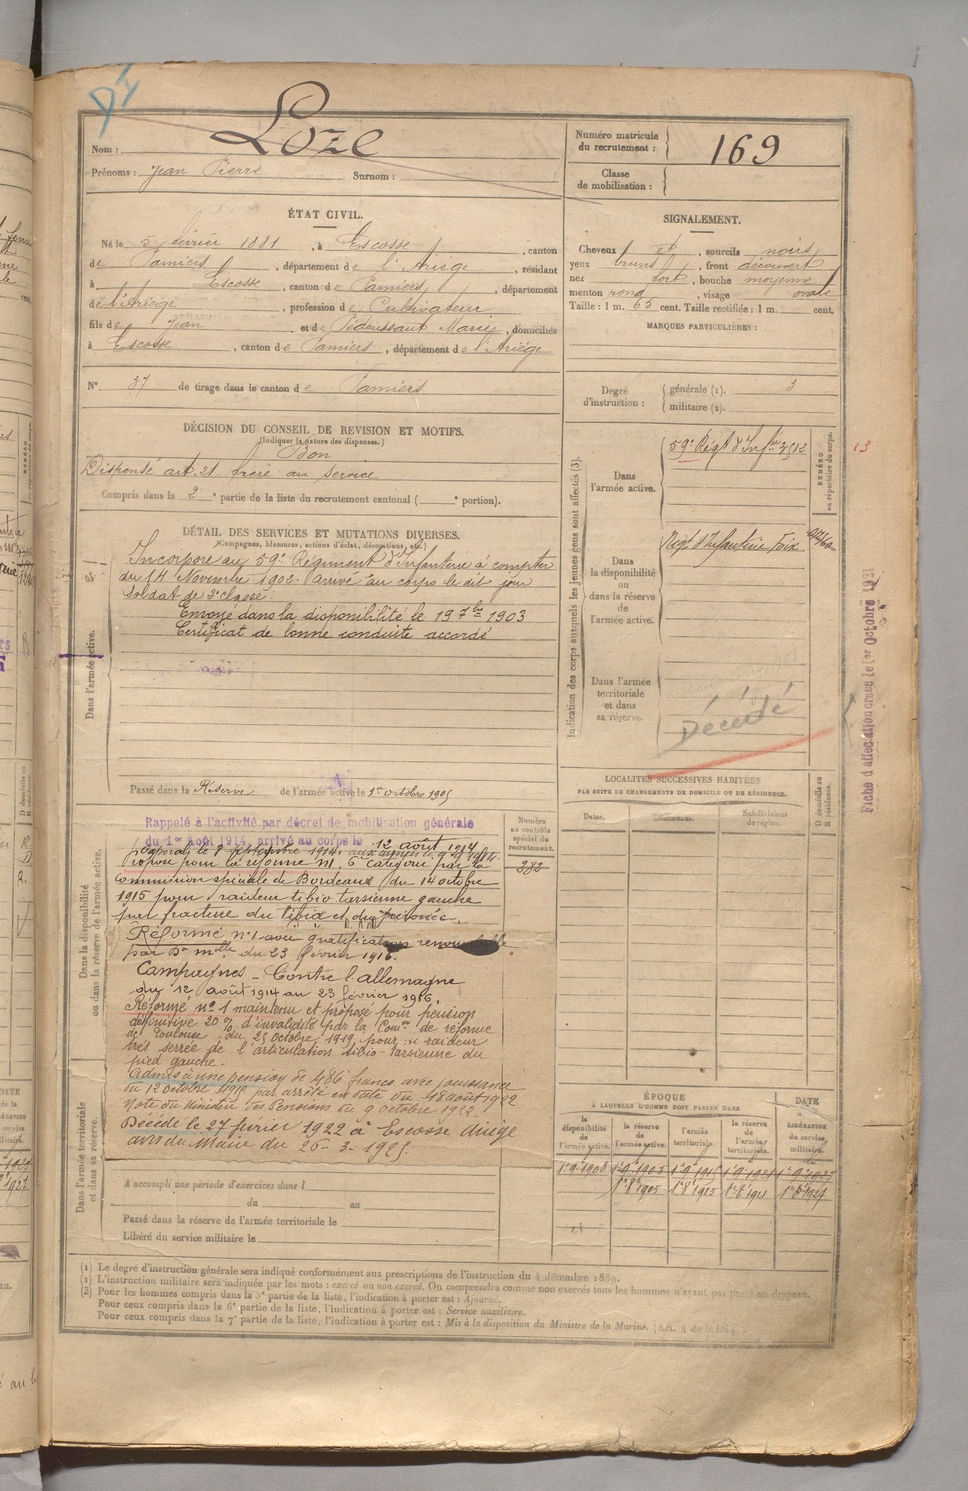 Nom : Loze
Prénoms : Jean Pierre Surnom :
Numéro matricule du recrutement : 169
Classe de mobilisation :
ÉTAT CIVIL.
Né le 5 février 1881, à Escosse, canton
de Pamiers, département de l'Ariège, résidant
à Escosse, canton de Pamiers, département
de l'Ariège, profession de Cultivateur
fils de Jean et de Pédoussaut Marie, domiciliés
à Escosse, canton de Pamiers, département de l'Ariège
N° 37 de tirage dans le canton de Pamiers
SIGNALEMENT.
Cheveux et, sourcils noirs
yeux bruns, front découvert
nez fort, bouche moyenne
menton rond, visage ovale
Taille : 1 m. 65 cent. Taille rectifiée : 1 m. cent.
MARQUES PARTICULIÈRES :
Degré d'instruction : générale (1). 3
militaire (2).
DÉCISION DU CONSEIL DE REVISION ET MOTIFS.
(Indiquer la nature des dispenses.)
Bon
Dispensé art. 21. frère au service
Compris dans la 2e partie de la liste du recrutement cantonal ( e portion).
DÉTAIL DES SERVICES ET MUTATIONS DIVERSES.
(Campagnes, blessures, actions d'éclat, décorations, etc.)
Dans l'armée active.
Incorporé au 59e Régiment d'Infanterie à compter
du 14 Novembre 1902. arrivé au corps le dit jour
Soldat de 2e classe.
Envoyé dans la disponibilité le 19 7bre 1903
Certificat de bonne conduite accordé
Passé dans la Réserve de l'armée active le 1er octobre 1905
Indication des corps auxquels les jeunes gens sont affectés (3).
Dans l'armée active.
59e Régt d'Infie 3512
NUMÉRO au répertoire du corps.
13
Dans la disponibilité ou dans la réserve de l'armée active.
Régt d'Infanterie Foix
Dans l'armée territoriale et dans sa réserve.
Décédé
Fiche d'affectation créée le 1er Octobre 1921
LOCALITÉS SUCCESSIVES HABITÉES
PAR SUITE DE CHANGEMENTS DE DOMICILE OU DE RÉSIDENCE.
D domicile ou R résidence.
Dates. Communes. Subdivisions de région.
Dans la disponibilité ou dans la réserve de l'armée active.
Numéro au contrôle spécial du recrutement.
282
Rappelé à l'activité par décret de mobilisation générale
du 1er Août 1914, arrivé au corps le 12 août 1914
Caporal le 8 septembre 1914.
Proposé pour la réforme n° 1. 6e catégorie par la
Commission spéciale de Bordeaux du 14 octobre
1915 pour raideur tibio tarsienne gauche
par fracture du tibia et du péronée.
Réformé n° 1 avec gratification renouvelable
par Don mlle du 23 février 1916.
Campagnes - Contre l'allemagne
du 12 août 1914 au 23 février 1916.
Réformé n° 1 maintenu et proposé pour pension
définitive 20 % d'invalidité par la Comon de réforme
de Toulouse du 25 octobre 1919 pour : raideur
très serrée de l'articulation tibio-tarsienne du
pied gauche.
Admis à une pension de 486 francs avec jouissance
du 12 octobre 1919 par arrêté en date du 18 août 1922
Note du Ministère des Pensions du 9 octobre 1922.
Décédé le 27 février 1922 à Escosse Ariège
avis du Maire du 26-3-1925.
Dans l'armée territoriale et dans sa réserve.
A accompli une période d'exercices dans l
du au
Passé dans la réserve de l'armée territoriale le
Libéré du service militaire le
ÉPOQUE
À LAQUELLE L'HOMME DOIT PASSER DANS
DATE de la LIBÉRATION du service militaire.
la disponibilité de l'armée active. la réserve de l'armée active. l'armée territoriale. la réserve de l'armée territoriale.
1er 8bre 1905 1er 8bre 1915 1er 8bre 1921 1er 8bre 1927
(1) Le degré d'instruction générale sera indiqué conformément aux prescriptions de l'instruction du 4 décembre 1889.
(2) L'instruction militaire sera indiquée par les mots : exercé ou non exercé. On comprendra comme non exercés tous les hommes n'ayant pas passé au drapeau.
(3) Pour les hommes compris dans la 5e partie de la liste, l'indication à porter est : Ajourné.
Pour ceux compris dans la 6e partie de la liste, l'indication à porter est : Service auxiliaire.
Pour ceux compris dans la 7e partie de la liste, l'indication à porter est : Mis à la disposition du Ministre de la Marine. (Art. 4 de la loi.)